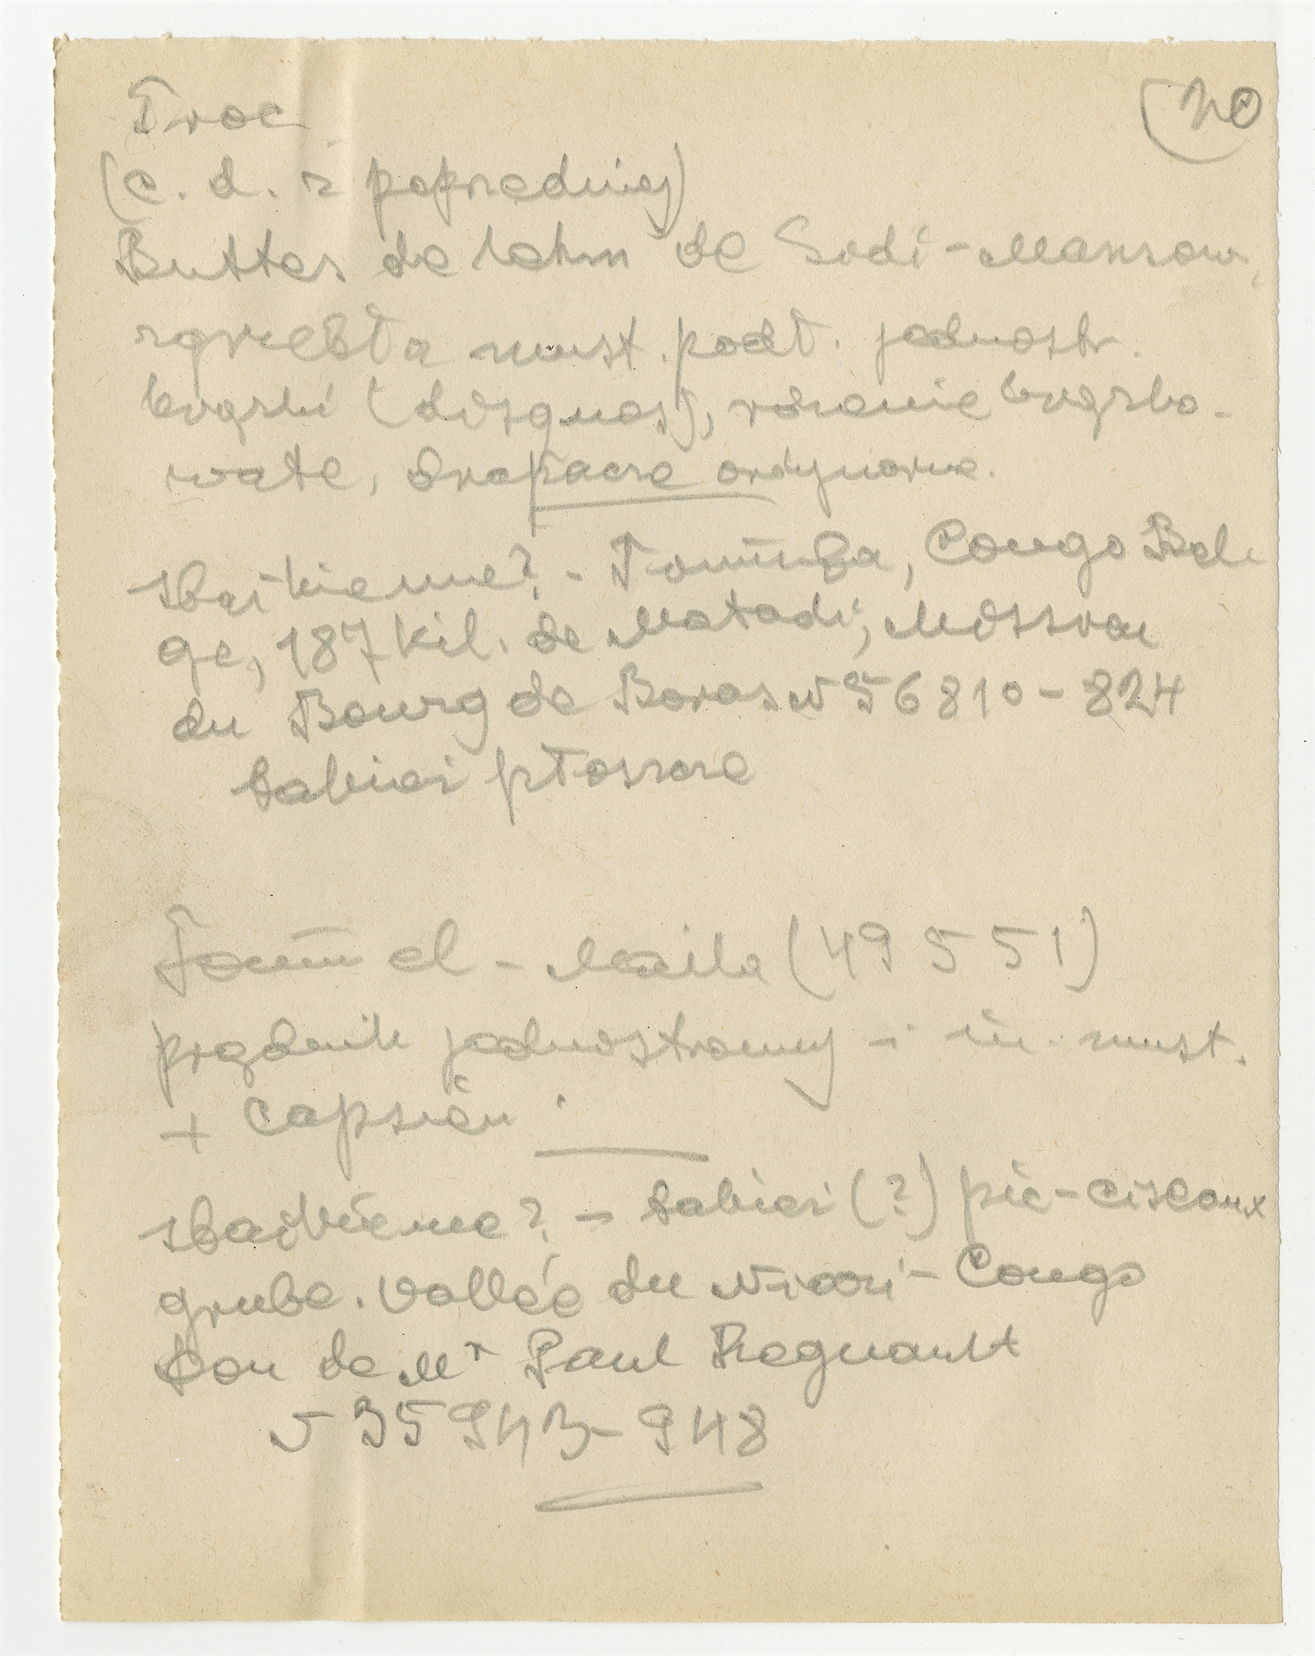 Troc
(20
(c. d. z poprzedniej)
Buttes de lehm de Sodi-Mansour,
zgrzebła must. podł. jednostr.
(disques),
wate, drapacze ordynarne.
sbaikienne? - Toumba, Congo Bel
ge, 187 kil. de Matadi, Mission
du Bourg de Bozas N 56810-824
tabiei płoszcze
Foum el-Maila (49551)
prądnik jednostronny - in. must.
+ Capsien.
sbaikienne? - tabiei (?) pic-ciseaux
grube. Vallée du Niari-Congo
Don de Mr Paul Regnault
N 35943-948